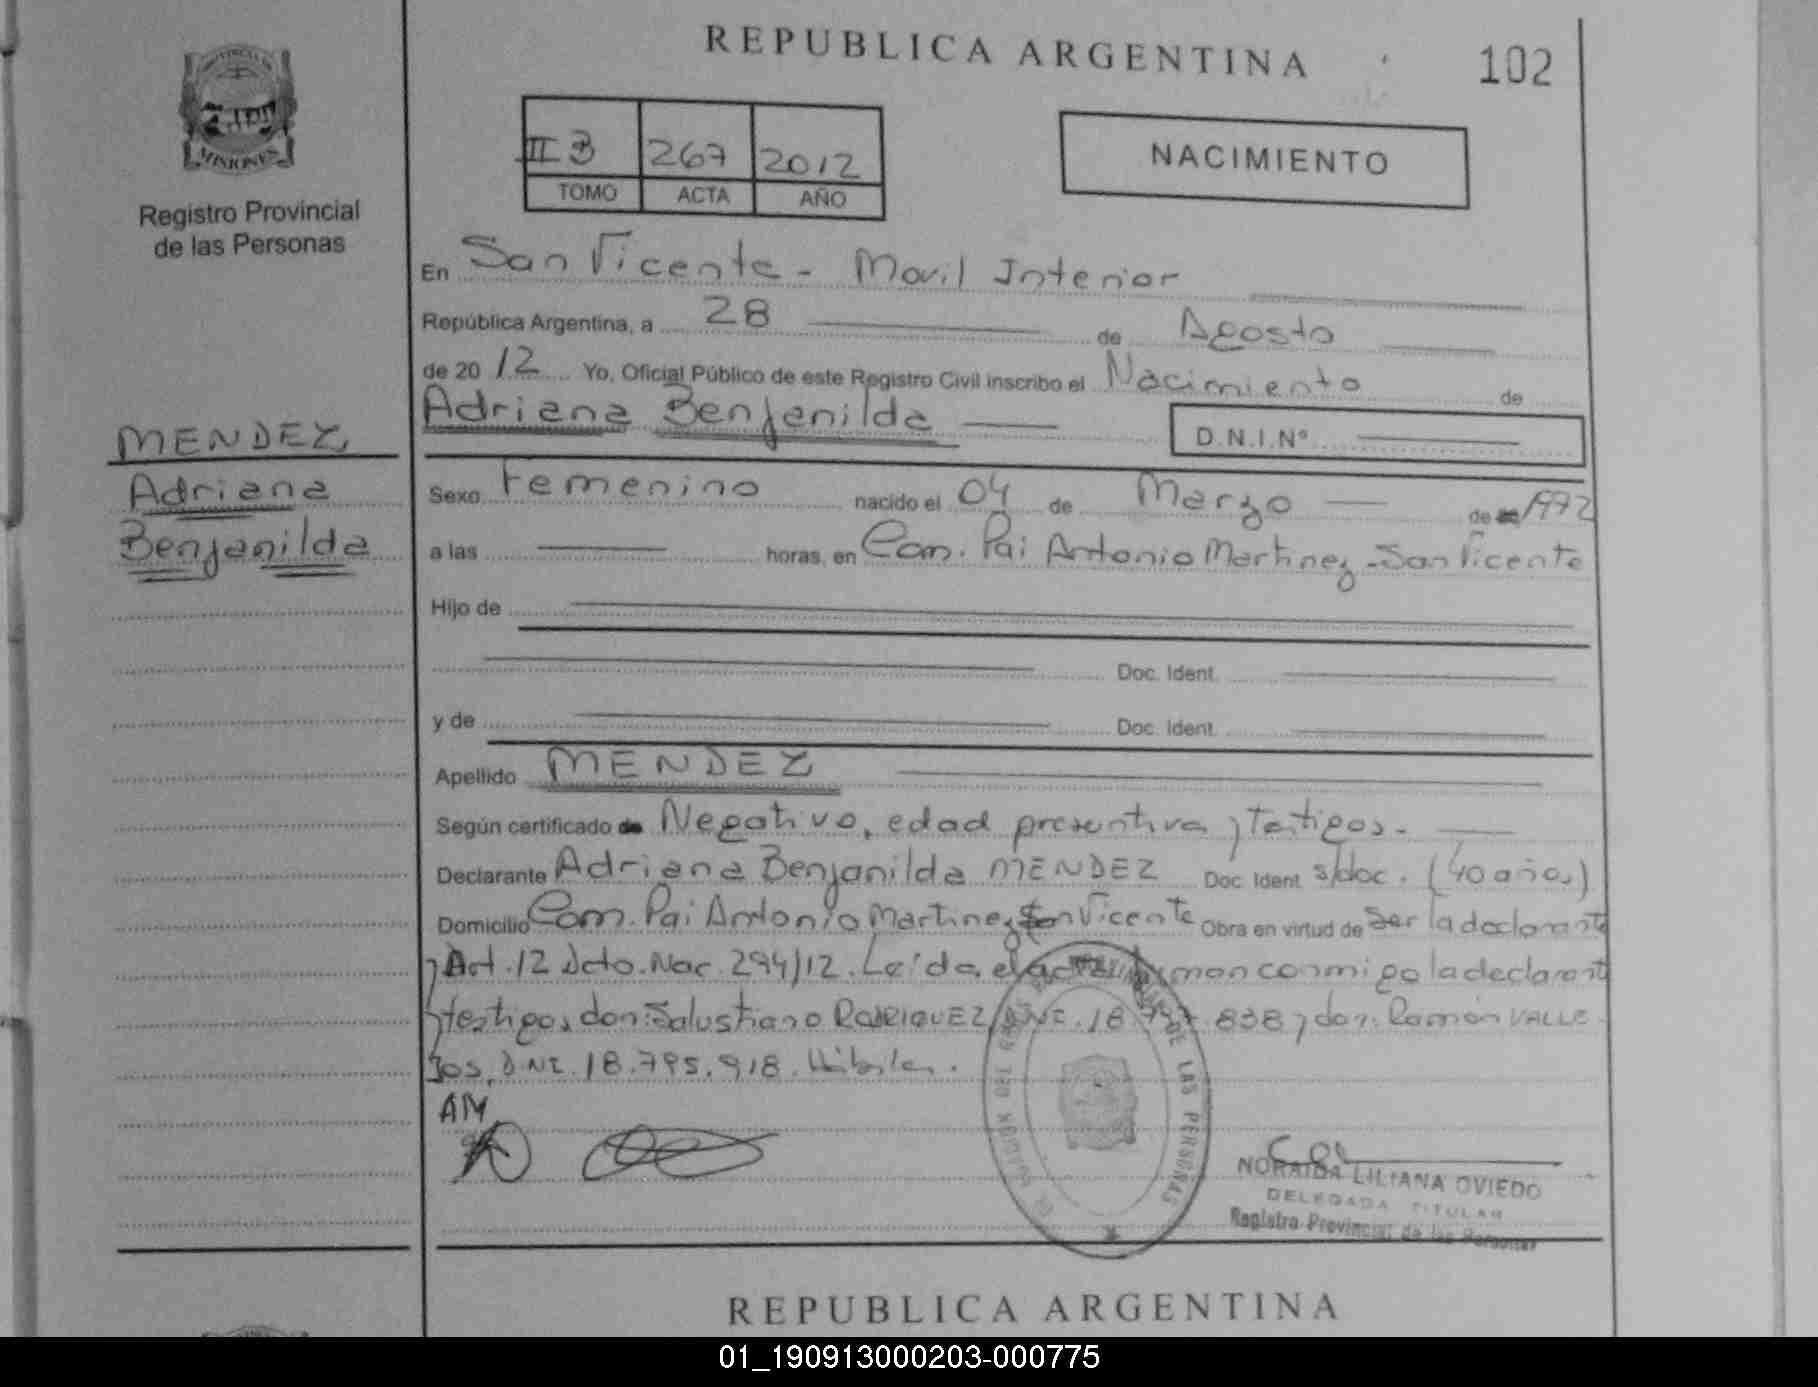 REPUBLICA ARGENTINA
102
PROVINCIA DE
MISIONES
Registro Provincial
de las Personas
II B 267 2012
TOMO ACTA AÑO
NACIMIENTO
En San Vicente - Movil Interior
República Argentina, a 28 de Agosto
de 20 12 Yo, Oficial Público de este Registro Civil inscribo el Nacimiento de
Adriana Benjanilda D.N.I.Nº
MENDEZ
Adriana
Benjanilda
Sexo Femenino nacido el 04 de Marzo de 1972
a las horas, en Com. Pai Antonio Martinez - San Vicente
Hijo de
Doc. Ident.
y de Doc. Ident.
Apellido MENDEZ
Según certificado de Negativo, edad presuntiva y testigos.
Declarante Adriana Benjanilda MENDEZ Doc. Ident. s/doc. (40 años)
Domicilio Com. Pai Antonio Martinez San Vicente Obra en virtud de Ser la declarante
y Art. 12 Dcto. Nac. 294/12. Leída el acta firman conmigo la declarant
y testigos don: Salustiano RODRIGUEZ DNI. 18 838 y don: Ramón VALLE
Jos, DNI. 18.795.918.
AM
DE LAS PERSONAS
NORAIDA LILIANA OVIEDO
DELEGADA TITULAR
Registro Provincial de las Personas
REPUBLICA ARGENTINA
01_190913000203-000775